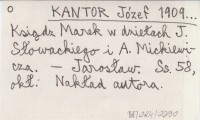 KANTOR Józef 1909...
Ksiądz Marek w dziełach J.
Słowackiego i A. Mickiewi-
cza. - Jarosław. Ss. 58,
okł: Nakład autora.